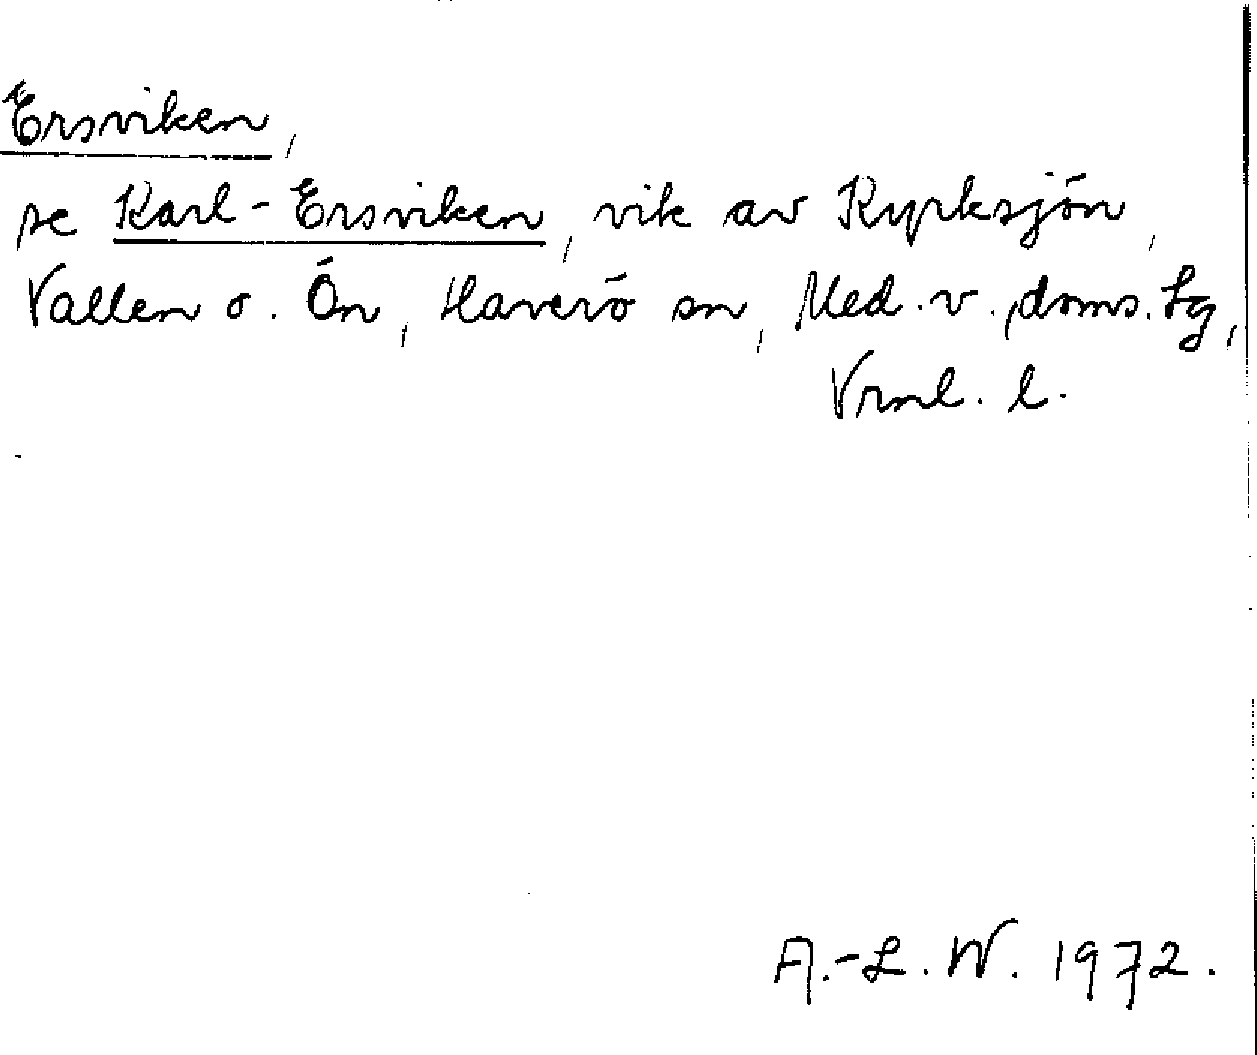 Ersviken,
se Karl-Ersviken, vik av Kyrksjön,
Vallen o. Ön, Haverö sn, Med. v. doms. tg,
Vrnl. l.
A.-L. W. 1972.